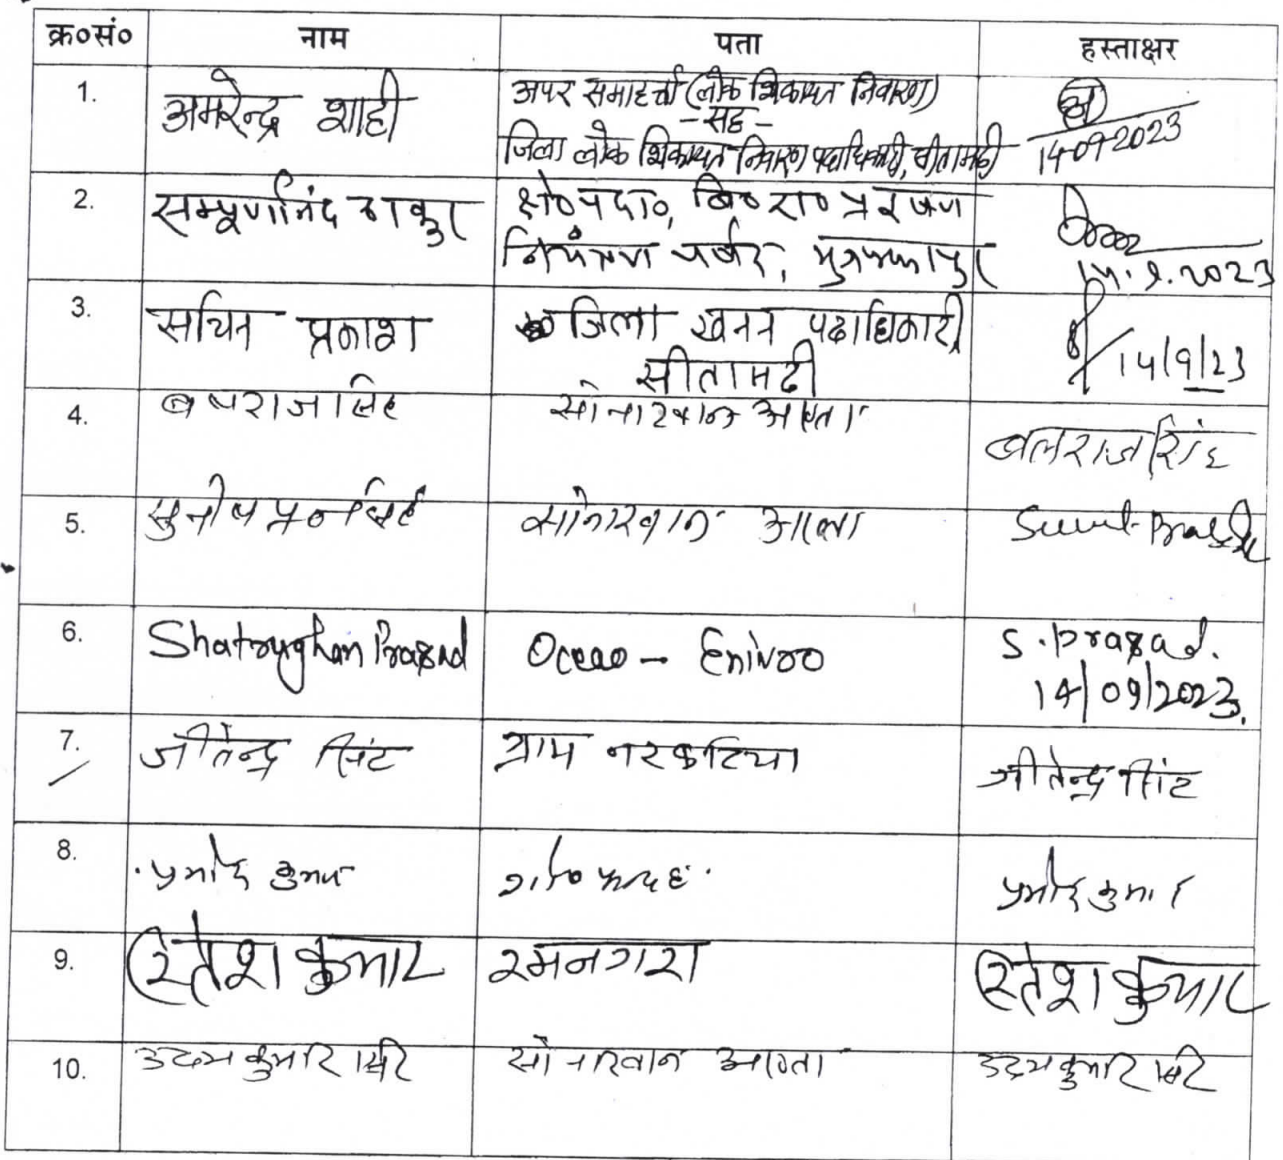 क्र०सं० नाम पता हस्ताक्षर
1. अमरेन्द्र शाही अपर समाहर्त्ता (लोक शिकायत निवारण)
-सह-
जिला लोक शिकायत निवारण पदाधिकारी, सीतामढ़ी
14-09-2023
2. सम्पूर्णानंद ठाकुर क्षे०पदा०, बि०रा०प्रदूषण
नियंत्रण पर्षद, मुजफ्फरपुर
14.9.2023
3. सचिन प्रकाश जिला खनन पदाधिकारी,
सीतामढ़ी
14/9/23
4. बलराज सिंह सोनारवान
बलराज सिंह
5. सोनारवान
6. Shatrughan Prasad Ocean - Eniviro S. prasad.
14/09/2023.
7. जीतेन्द्र सिंह ग्राम नरकटिया जीतेन्द्र सिंह
8. प्रमोद कुमार प्रमोद कुमार
9. रितेश कुमार रमनगरा रितेश कुमार
10. उदय कुमार सोनारवान उदय कुमार